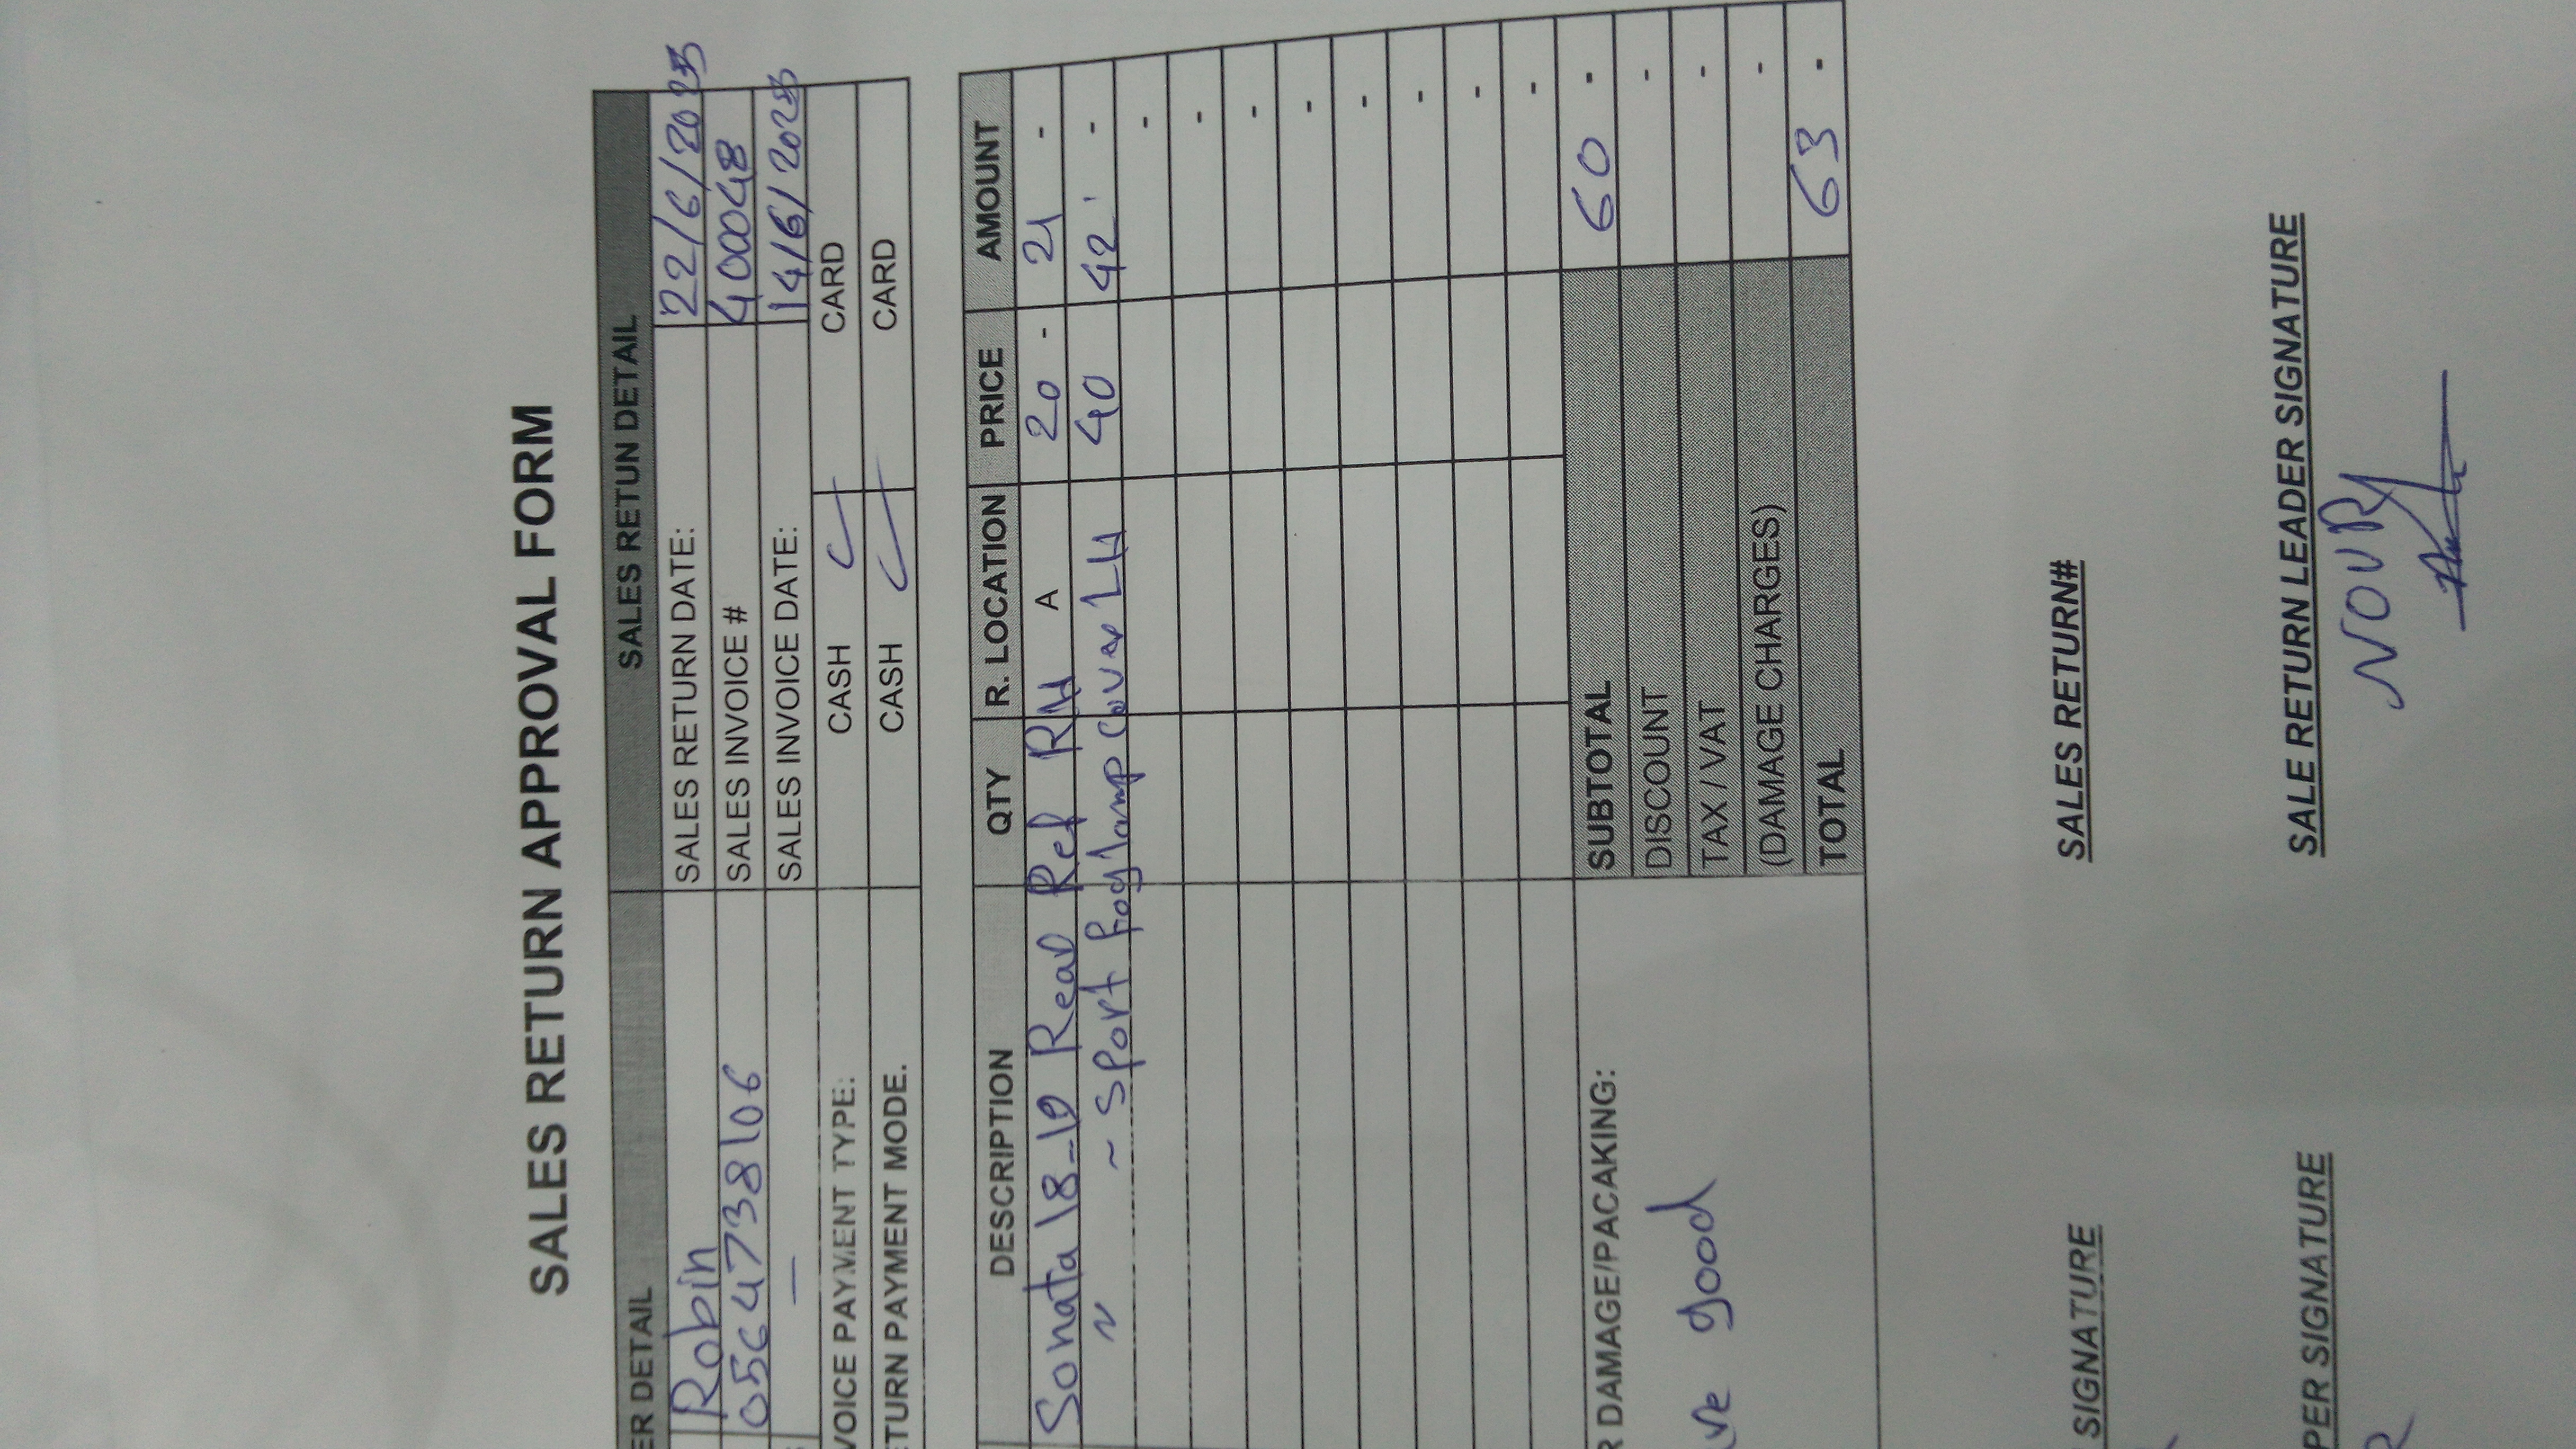 SALES RETURN APPROVAL FORM
ER DETAIL SALES RETUN DETAIL
Robin SALES RETURN DATE: 22/6/2023
0564738106 SALES INVOICE # 400048
— SALES INVOICE DATE: 14/6/2023
VOICE PAYMENT TYPE: CASH CARD
TURN PAYMENT MODE. CASH CARD
DESCRIPTION QTY R. LOCATION PRICE AMOUNT
Sonata 18-19 Rear Ref RH A 20 - 21 -
~ ~ Sport foglamp cover LH 40 42 -
-
-
-
-
-
-
-
-
R DAMAGE/PACAKING: SUBTOTAL 60 -
DISCOUNT -
good TAX / VAT -
(DAMAGE CHARGES) -
TOTAL 63 -
SIGNATURE SALES RETURN#
PER SIGNATURE SALE RETURN LEADER SIGNATURE
NOURI